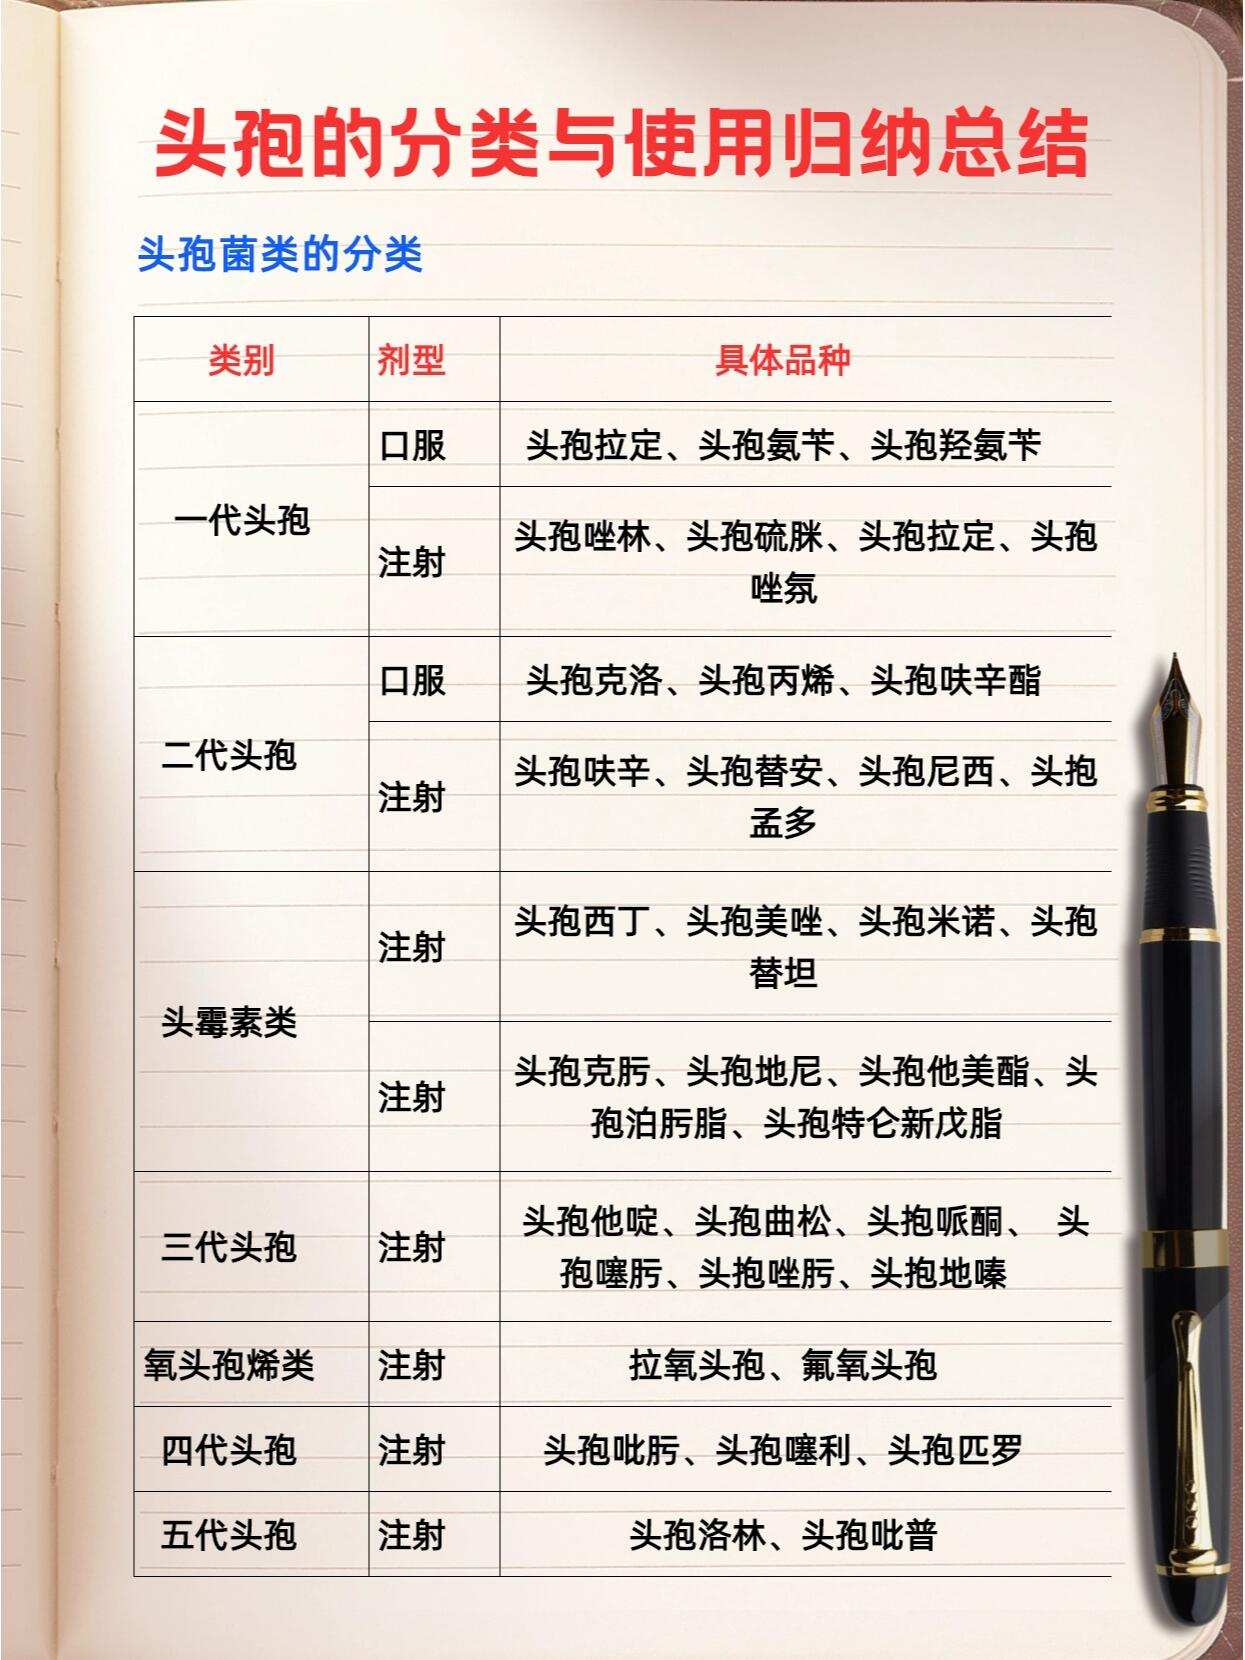 头孢的分类与使用归纳总结
头孢菌类的分类
类别 剂型 具体品种
一代头孢
口服 头孢拉定、头孢氨苄、头孢羟氨苄
注射
头孢唑林、头孢硫脒、头孢拉定、头孢
唑氛
二代头孢
口服 头孢克洛、头孢丙烯、头孢呋辛酯
注射
头孢呋辛、头孢替安、头孢尼西、头抱
孟多
头霉素类
注射
头孢西丁、头孢美唑、头孢米诺、头孢
替坦
注射
头孢克肟、头孢地尼、头孢他美酯、头
孢泊肟脂、头孢特仑新戊脂
三代头孢 注射
头孢他啶、头孢曲松、头抱哌酮、 头
孢噻肟、头抱唑肟、头抱地嗪
氧头孢烯类 注射 拉氧头孢、氟氧头孢
四代头孢 注射 头孢吡肟、头孢噻利、头孢匹罗
五代头孢 注射 头孢洛林、头孢吡普